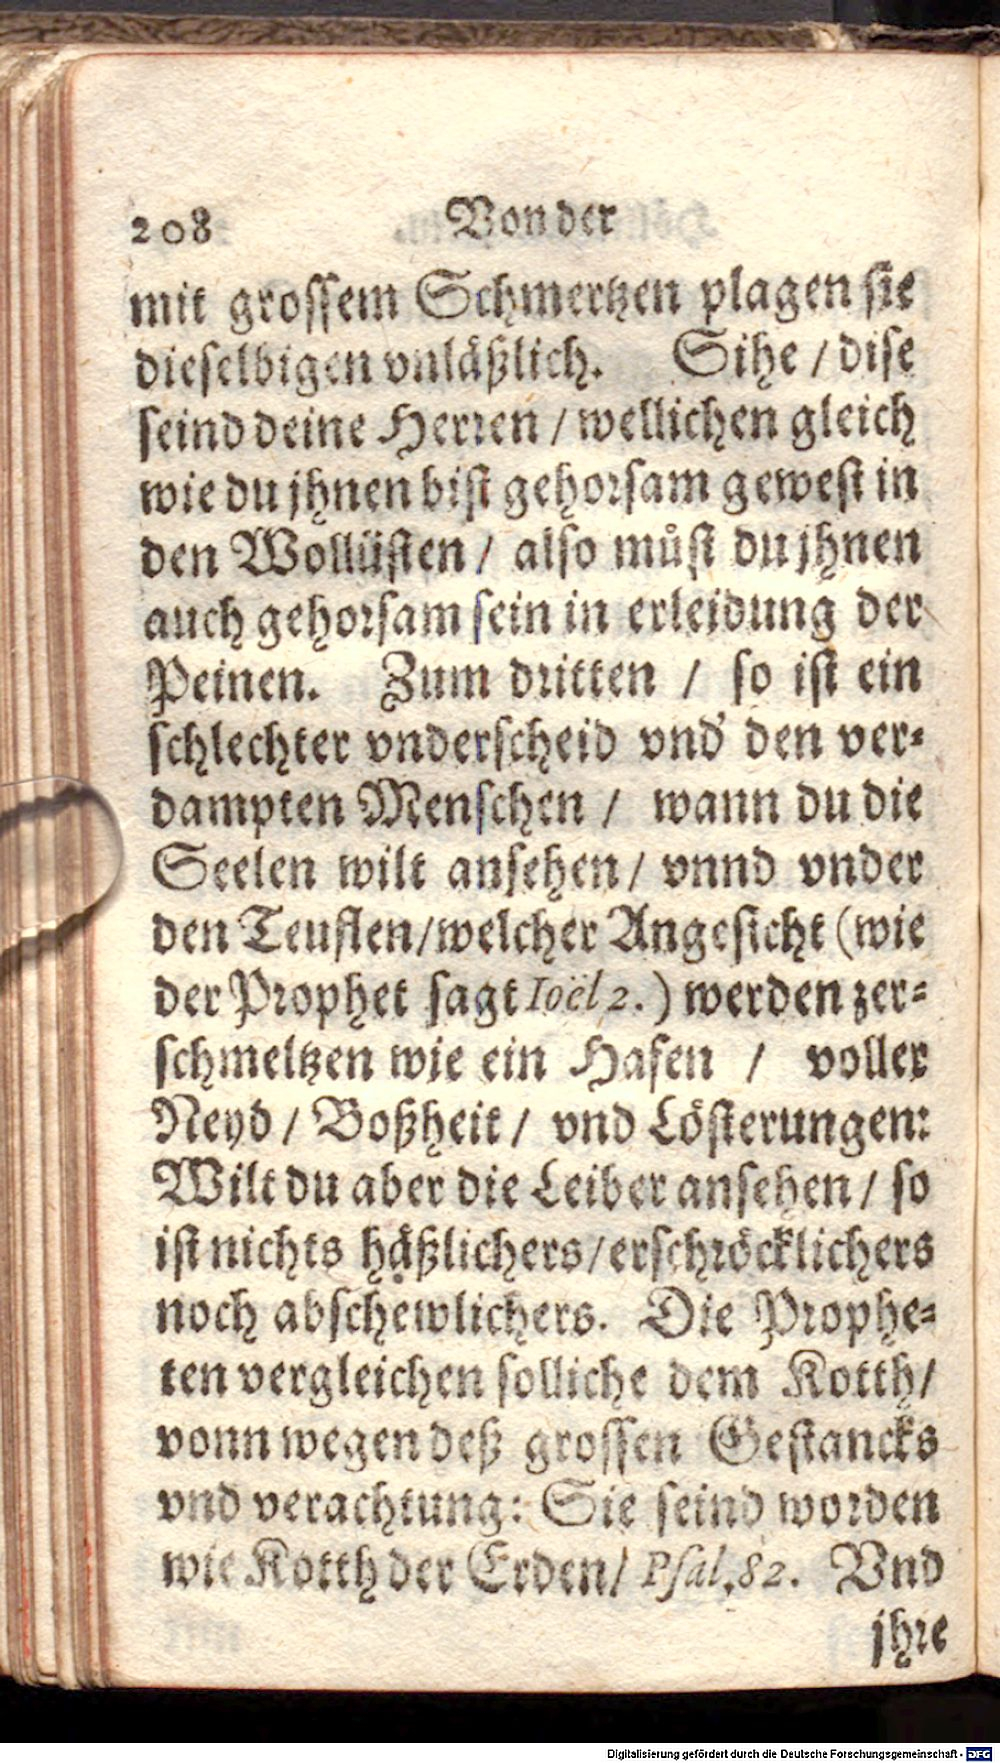 208 Von der
mit grossem Schmertzen plagen sie
dieselbigen vnläßlich. Sihe / dise
seind deine Herren / wellichen gleich
wie du jhnen bist gehorsam gewest in
den Wollüsten / also můst du jhnen
auch gehorsam sein in erleidung der
Peinen. Zum dritten / so ist ein
schlechter vnderscheid vnd' den ver-
dampten Menschen / wann du die
Seelen wilt ansehen / vnnd vnder
den Teuflen / welcher Angesicht (wie
der Prophet sagt Ioël 2.) werden zer-
schmeltzen wie ein Hafen / voller
Neyd / Boßheit / vnd Lösterungen:
Wilt du aber die Leiber ansehen / so
ist nichts häßlichers / erschröcklichers
noch abschewlichers. Die Prophe-
ten vergleichen solliche dem Kotth /
vonn wegen deß grossen Gestancks
vnd verachtung: Sie seind worden
wie Kotth der Erden / Psal. 82. Vnd
jhre
Digitalisierung gefördert durch die Deutsche Forschungsgemeinschaft - DFG